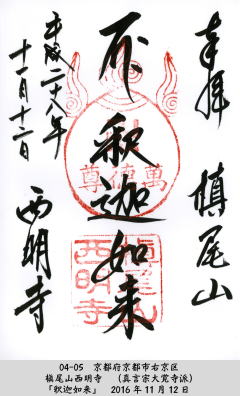 奉拝
槙尾山
釈迦如来
萬徳尊
槙尾山
西明寺
平成二十八年
十一月十二日
西明寺
04-05 京都府京都市右京区
槇尾山西明寺 (真言宗大覚寺派)
「釈迦如来」 2016年11月12日